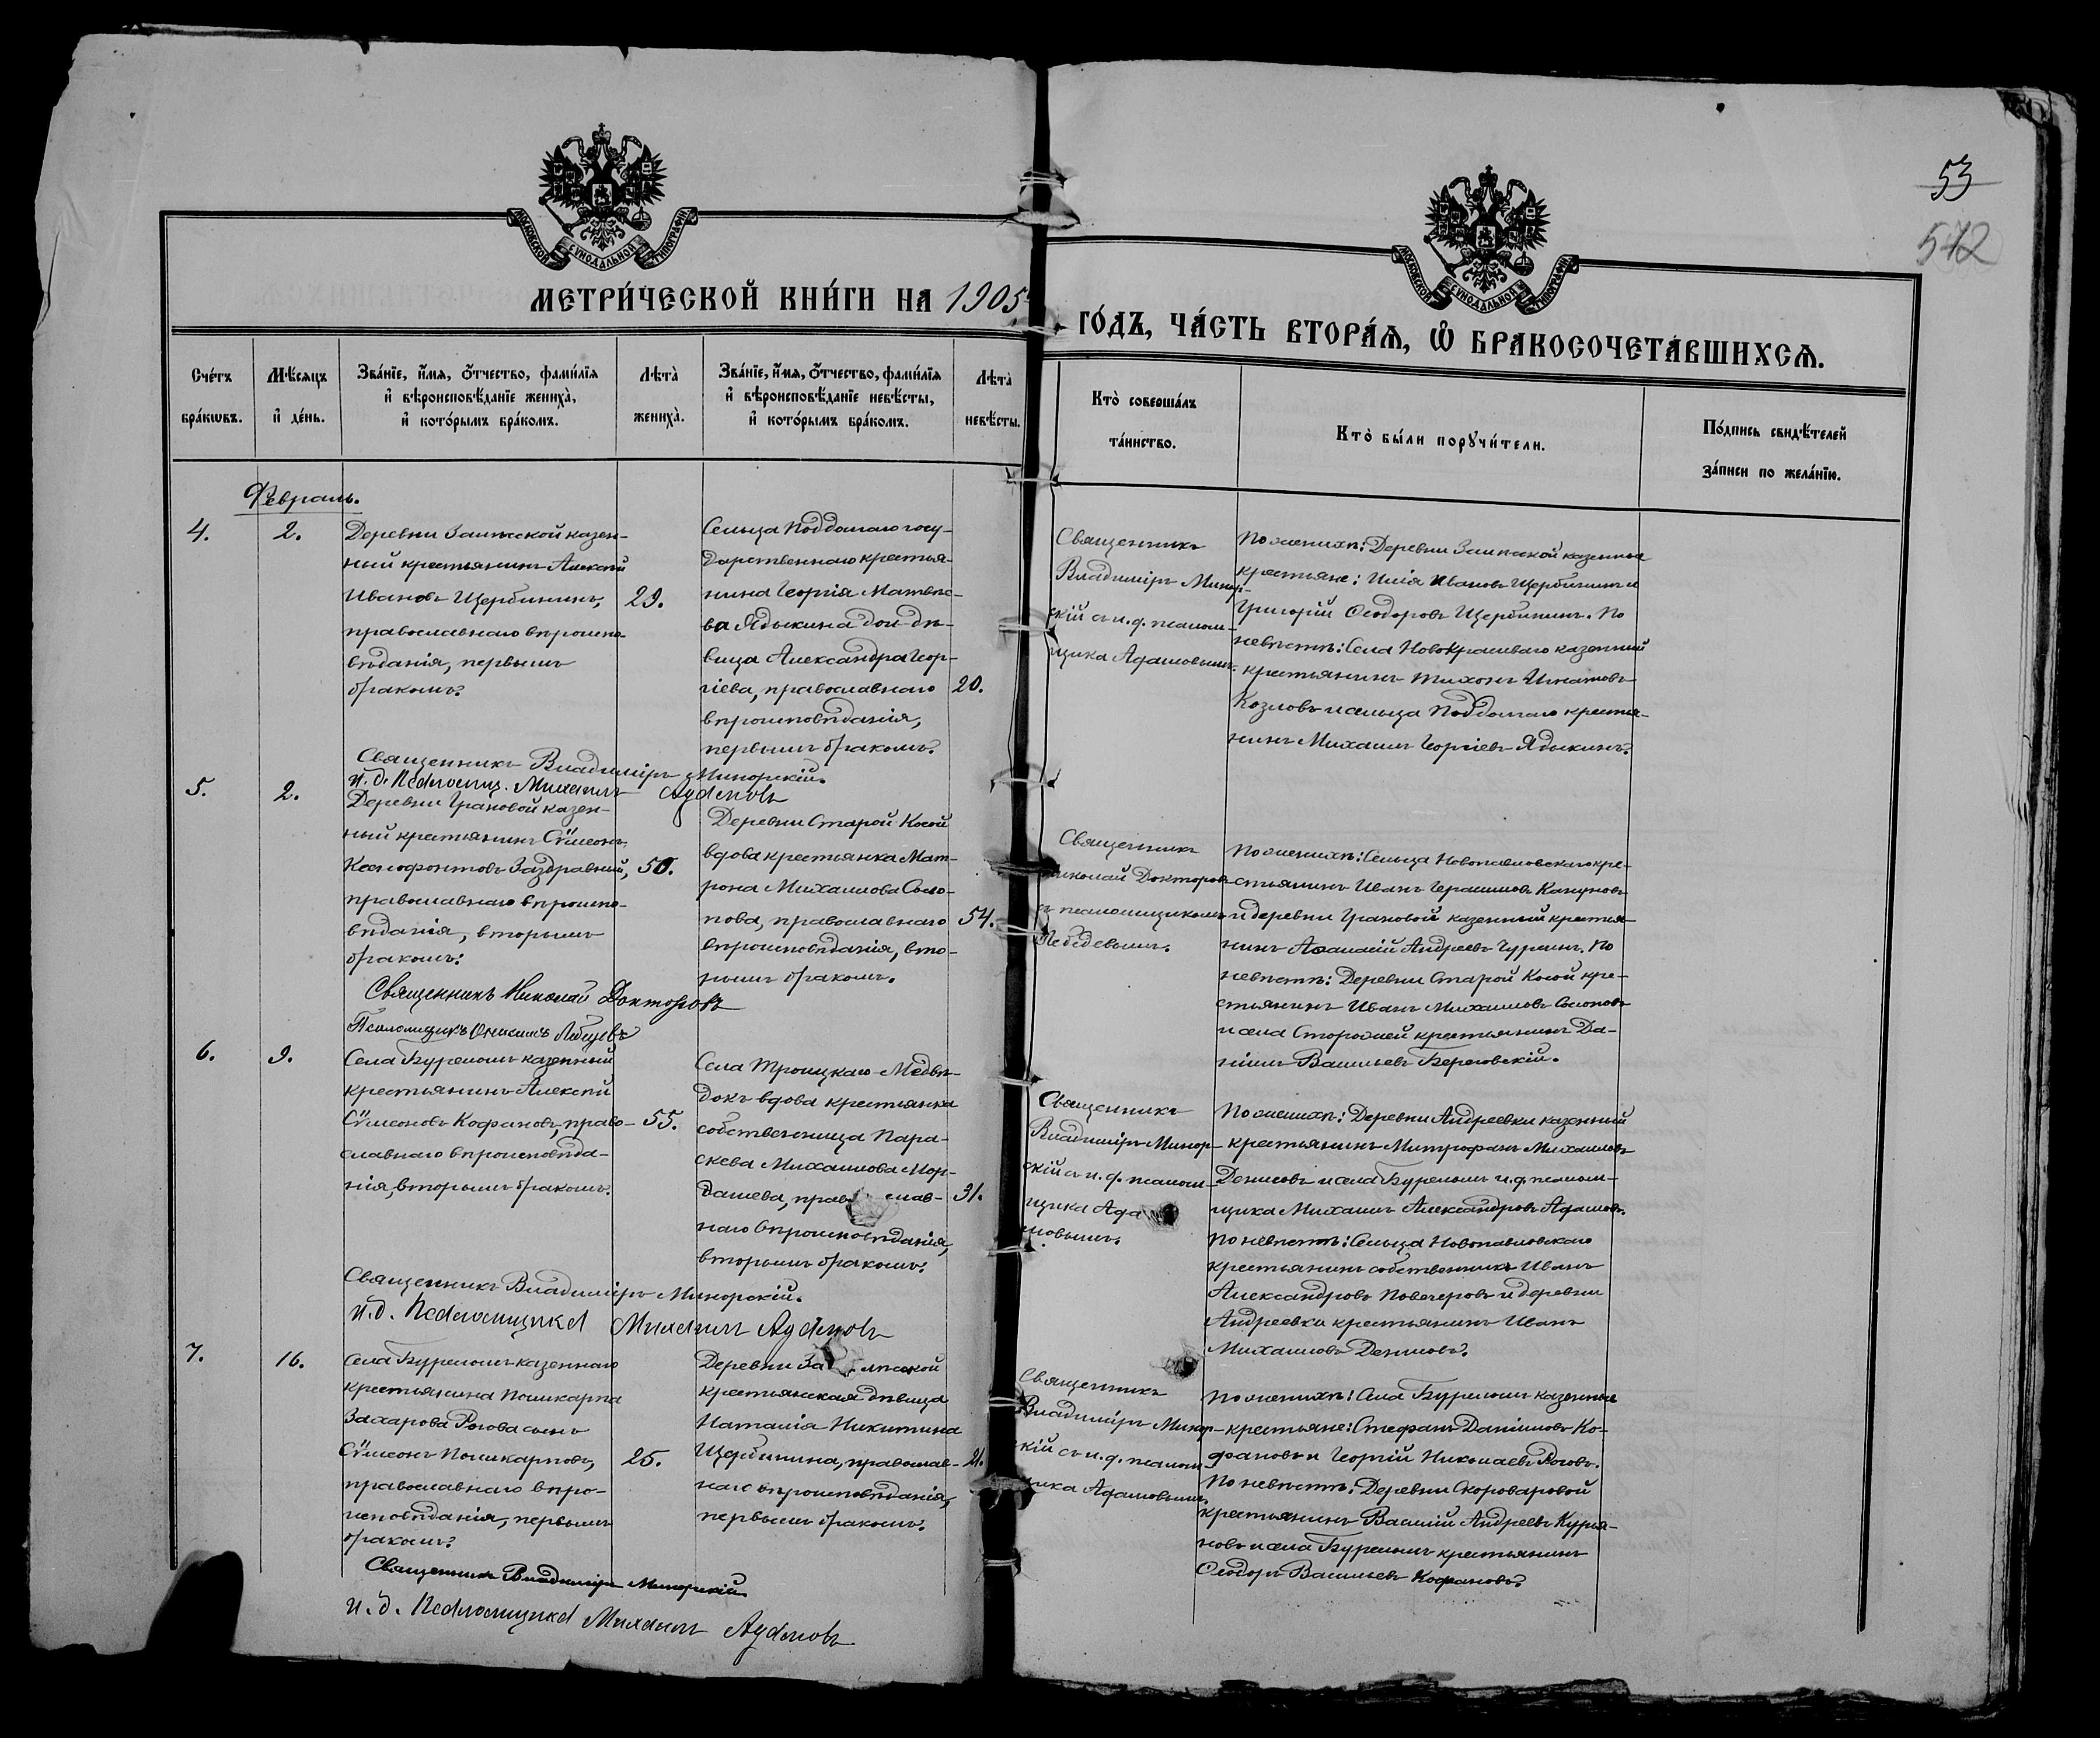 53
542
МОСКОВСКОЙ СѴНОДАЛЬНОЙ ТИПОГРАФІИ
МОСКОВСКОЙ СѴНОДАЛЬНОЙ ТИПОГРАФІИ
МЕТРИ́ЧЕСКОЙ КНИ́ГИ НА 1905
ГО́ДЪ, ЧА́СТЬ ВТОРА́Ѧ, Ѡ҆ БРАКОСОЧЕТА́ВШИХСѦ.
Сче́тъ бра́кѡвъ.
Мѣ́сѧцъ и҆ де́нь.
Зва́нїе, и҆́мѧ, ѻ҆́тчество, фами́лїѧ и҆ вѣроисповѣ́данїе жениха̀, и҆ кото́рымъ бра́комъ.
Лѣта̀ жениха̀.
Зва́нїе, и҆́мѧ, ѻ҆́тчество, фами́лїѧ и҆ вѣроисповѣ́данїе невѣ́сты, и҆ кото́рымъ бра́комъ.
Лѣта̀ невѣ́сты.
Кто̀ соверша́лъ та́инство.
Кто̀ бы́ли порꙋчи́тели.
По́дпись свидѣ́телей за́писи по жела́нїю.
Февраль.
4.
2.
Деревни казен-
ный крестьянинъ Алексѣй
Ивановъ Щербининъ,
православнаго вѣроиспо-
вѣданія, первымъ
бракомъ.
29.
Сельца Поддолгаго госу-
дарственнаго крестья-
нина Георгія Матвѣе-
ва Ядыкина дочь дѣ-
вица Александра Геор-
гіева, православнаго
вѣроисповѣданія,
первымъ бракомъ.
20.
Священникъ
Владиміръ Минор-
скій съ и.д. псалом-
щика Адамовымъ.
По женихѣ: Деревни казенные
крестьяне: Илія Ивановъ Щербининъ и
Григорій Ѳеодоровъ Щербининъ. По
невѣстѣ: Села Новокрасиваго казенный
крестьянинъ Тихонъ Игнатовъ
Козловъ и сельца Поддолгаго крестья-
нинъ Михаилъ Георгіевъ Ядыкинъ.
Священникъ Владиміръ Минорскій.
И. д. Псаломщ. Михаилъ Адамовъ
5.
2.
Деревни Грановой казен-
ный крестьянинъ Сѵмеонъ
Ксенофонтовъ Заздравный,
православнаго вѣроиспо-
вѣданія, вторымъ
бракомъ.
50.
Деревни Старой Косой
вдова крестьянка Мат-
рона Михаилова Сысо-
пова, православнаго
вѣроисповѣданія, вто-
рымъ бракомъ.
54.
Священникъ
Николай Докторовъ
съ псаломщикомъ
Лебедевымъ.
По женихѣ: Сельца Новопавловскаго кре-
стьянинъ Иванъ Герасимовъ Капуновъ
и деревни Грановой казенный крестья-
нинъ Аѳанасій Андреевъ Чуркинъ. По
невѣстѣ: Деревни Старой Косой кре-
стьянинъ Иванъ Михаиловъ
и села Сторожей крестьянинъ Да-
ніилъ Васильевъ Береговскій.
Священникъ Николай Докторовъ
Псаломщикъ
6.
9.
Села Буреломъ казенный
крестьянинъ Алексѣй
Сѵмеоновъ Кофановъ, право-
славнаго вѣроисповѣда-
нія, вторымъ бракомъ.
55.
Села Троицкаго-Медвѣ-
докъ вдова крестьянка
собственница Пара-
скева Михаилова Мор-
дашева, православ-
наго вѣроисповѣданія,
вторымъ бракомъ.
31.
Священникъ
Владиміръ Минор-
скій съ и.д. псалом-
щика Ада
мовымъ.
По женихѣ: Деревни Андреевки казенный
крестьянинъ Митрофанъ Михаиловъ
Денисовъ и села Буреломъ и.д. псалом-
щика Михаилъ Александровъ Адамовъ.
По невѣстѣ: Сельца Новопавловскаго
крестьянинъ собственникъ Иванъ
Александровъ Повечеровъ и деревни
Андреевки крестьянинъ Иванъ
Михаиловъ Денисовъ.
Священникъ Владиміръ Минорскій.
И.д. Псаломщика Михаилъ Адамовъ
7.
16.
Села Буреломъ казеннаго
крестьянина Поликарпа
Захарова Рогова сынъ
Сѵмеонъ Поликарповъ,
православнаго вѣро-
исповѣданія, первымъ
бракомъ.
25.
Деревни
крестьянская дѣвица
Наталія Никитина
Щербинина, православ-
наго вѣроисповѣданія,
первымъ бракомъ.
21.
Священникъ
Владиміръ Минор-
скій съ и.д. псалом-
щика Адамовымъ.
По женихѣ: Села Буреломъ казенные
крестьяне: Стефанъ Даніиловъ Ко-
фановъ и Георгій Николаевъ Роговъ.
По невѣстѣ: Деревни Скороваровой
крестьянинъ Василій Андреевъ Курья-
новъ и села Буреломъ крестьянинъ
Ѳеодоръ Васильевъ Кофановъ.
Священникъ Владиміръ Минорскій
И.д. Псаломщика Михаилъ Адамовъ